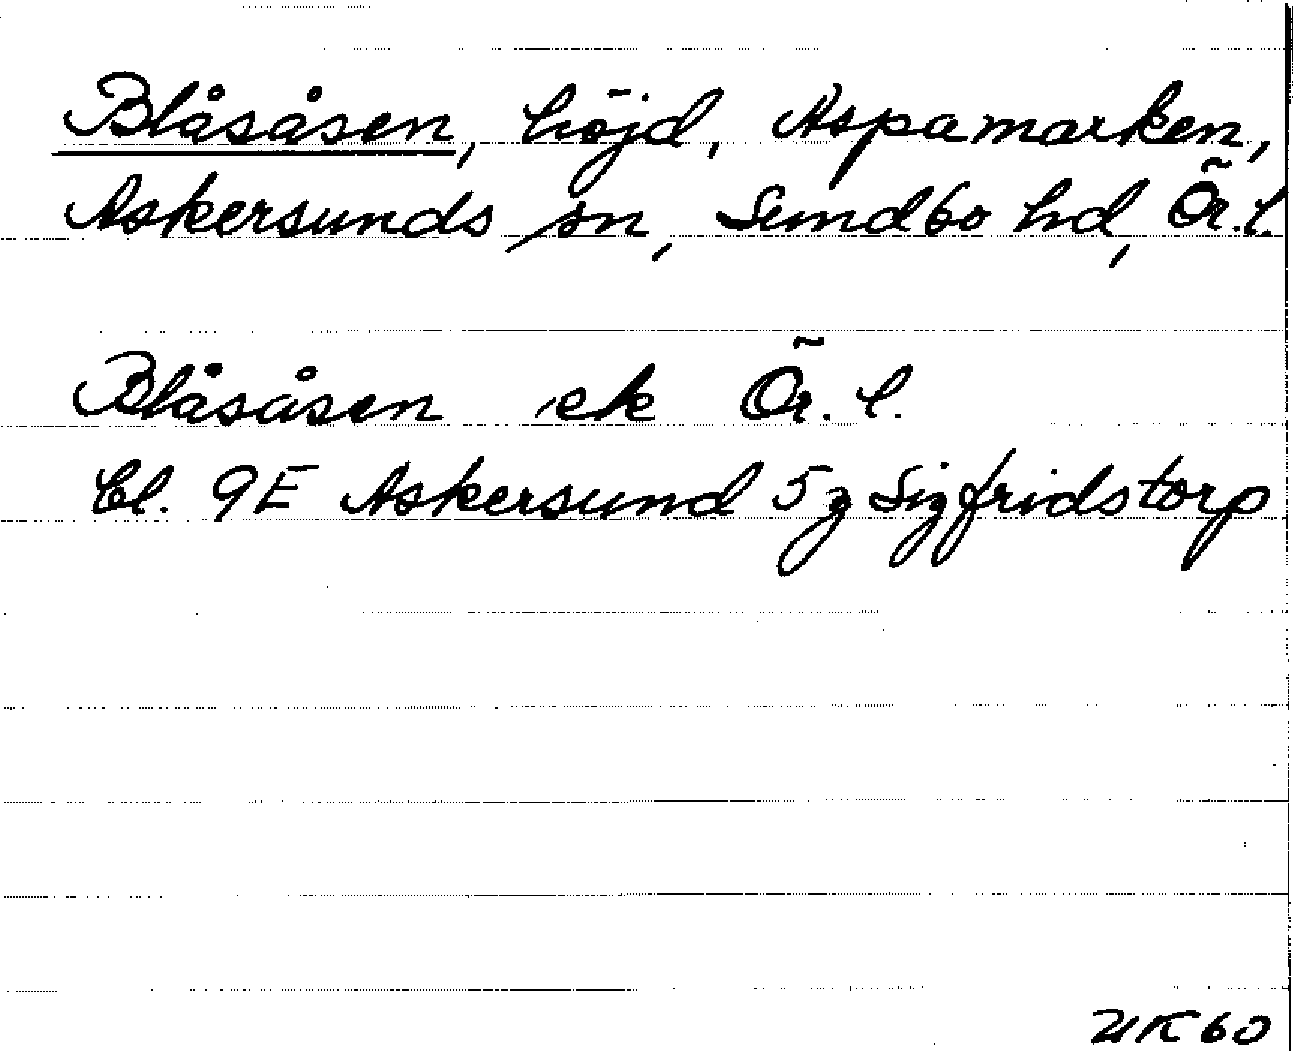 Blåsåsen, höjd, Aspamarken,
Askersunds sn, Sundbo hd, Ör. l.
Blåsåsen ek Ör. l.
Bl. 9E Askersund 5g Sigfridstorp
UK 60